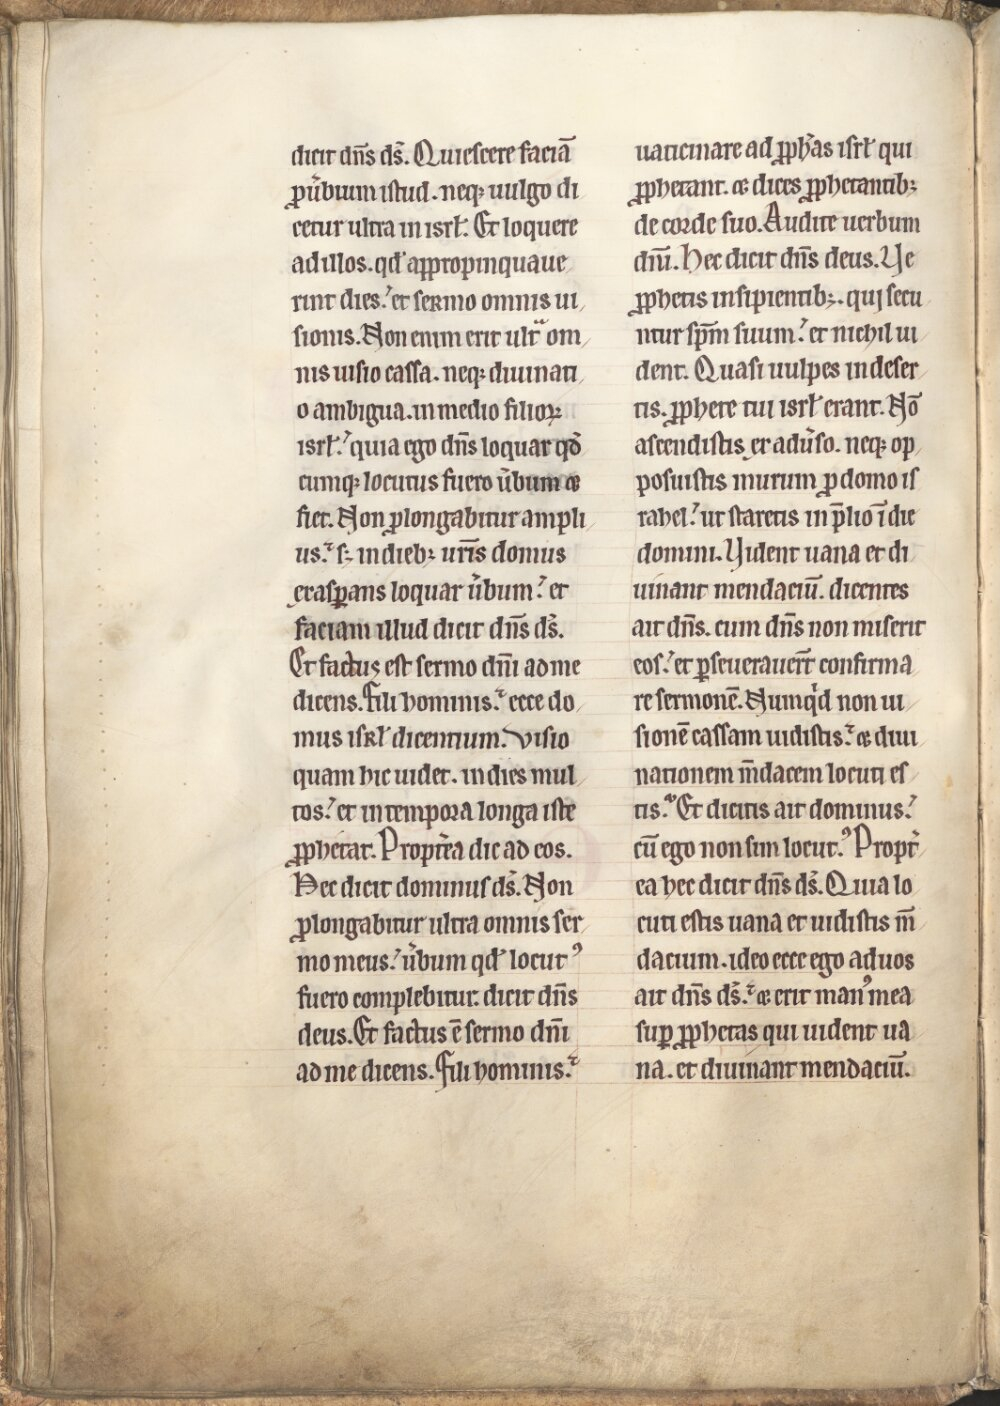 dicit dn̄s ds̄. Quiescere faciā
ꝓu̓bium istud. neqꝫ uulgo di
cetur ultra in isrl̓. Et loquere
ad illos. qd̓ appropinquaue
rint dies.᾽ et sermo omnis ui
sionis. Non enim erit ultᵃ om
nis uisio cassa. neqꝫ diuinati
o ambigua. in medio filioꝝ
isrl̓.᾽ quia ego dn̄s loquar qd̓
cumqꝫ locutus fuero u̓bum &
fiet. Non ꝓlongabitur ampli
us.᾽ sꝫ in diebꝫ uris̄ domus
exasꝑans loquar u̓bum.᾽ et
faciam illud dicit dn̄s ds̄.
Et factus est sermo dn̄i ad me
dicens. Fili hominis.᾽ ecce do
mus isrl̓ dicentium. Visio
quam hic uidet. in dies mul
tos.᾽ et in tempora longa iste
ꝓphetat. Propt̓ea dic ad eos.
Hec dicit dominus ds̄. Non
ꝓlongabitur ultra omnis ser
mo meus.᾽ u̓bum qd̓ locutꝰ
fuero complebitur. dicit dn̄s
deus. Et factus ē sermo dn̄i
ad me dicens. Fili hominis.᾽
uaticinare ad ꝓph̓as isrl̓ qui
ꝓphetant. & dices ꝓphetantibꝫ
de corde suo. Audite uerbum
dn̄i. Hec dicit dn̄s deus. Ve
ꝓphetis insipientibꝫ. qui secu
ntur sp̄m suum.᾽ et nichil ui
dent. Quasi uulpes in deser
tis. ꝓphete tui isrl̓ erant. Nō
ascendistis ex adu̓so. neqꝫ op
posuistis murum ꝓ domo is
rahel.᾽ ut staretis in p̄lio ī die
domini. Vident uana et di
uinant mendaciū. dicentes
ait dn̄s. cum dn̄s non miserit
eos.᾽ et ꝑseuerauer̄t confirma
re sermonē. Numqͥd non ui
sionē cassam uidistis.᾽ & diui
nationem m̄dacem locuti es
tis.᾽ Et dicitis ait dominus.᾽
cū ego non sim locutꝰ. Propt̓
ea hec dicit dn̄s ds̄. Quia lo
cuti estis uana et uidistis m̄
dacium. ideo ecce ego ad uos
ait dn̄s ds̄.᾽ & erit manꝰ mea
suꝑ ꝓphetas qui uident ua
na. et diuinant mendaciū.